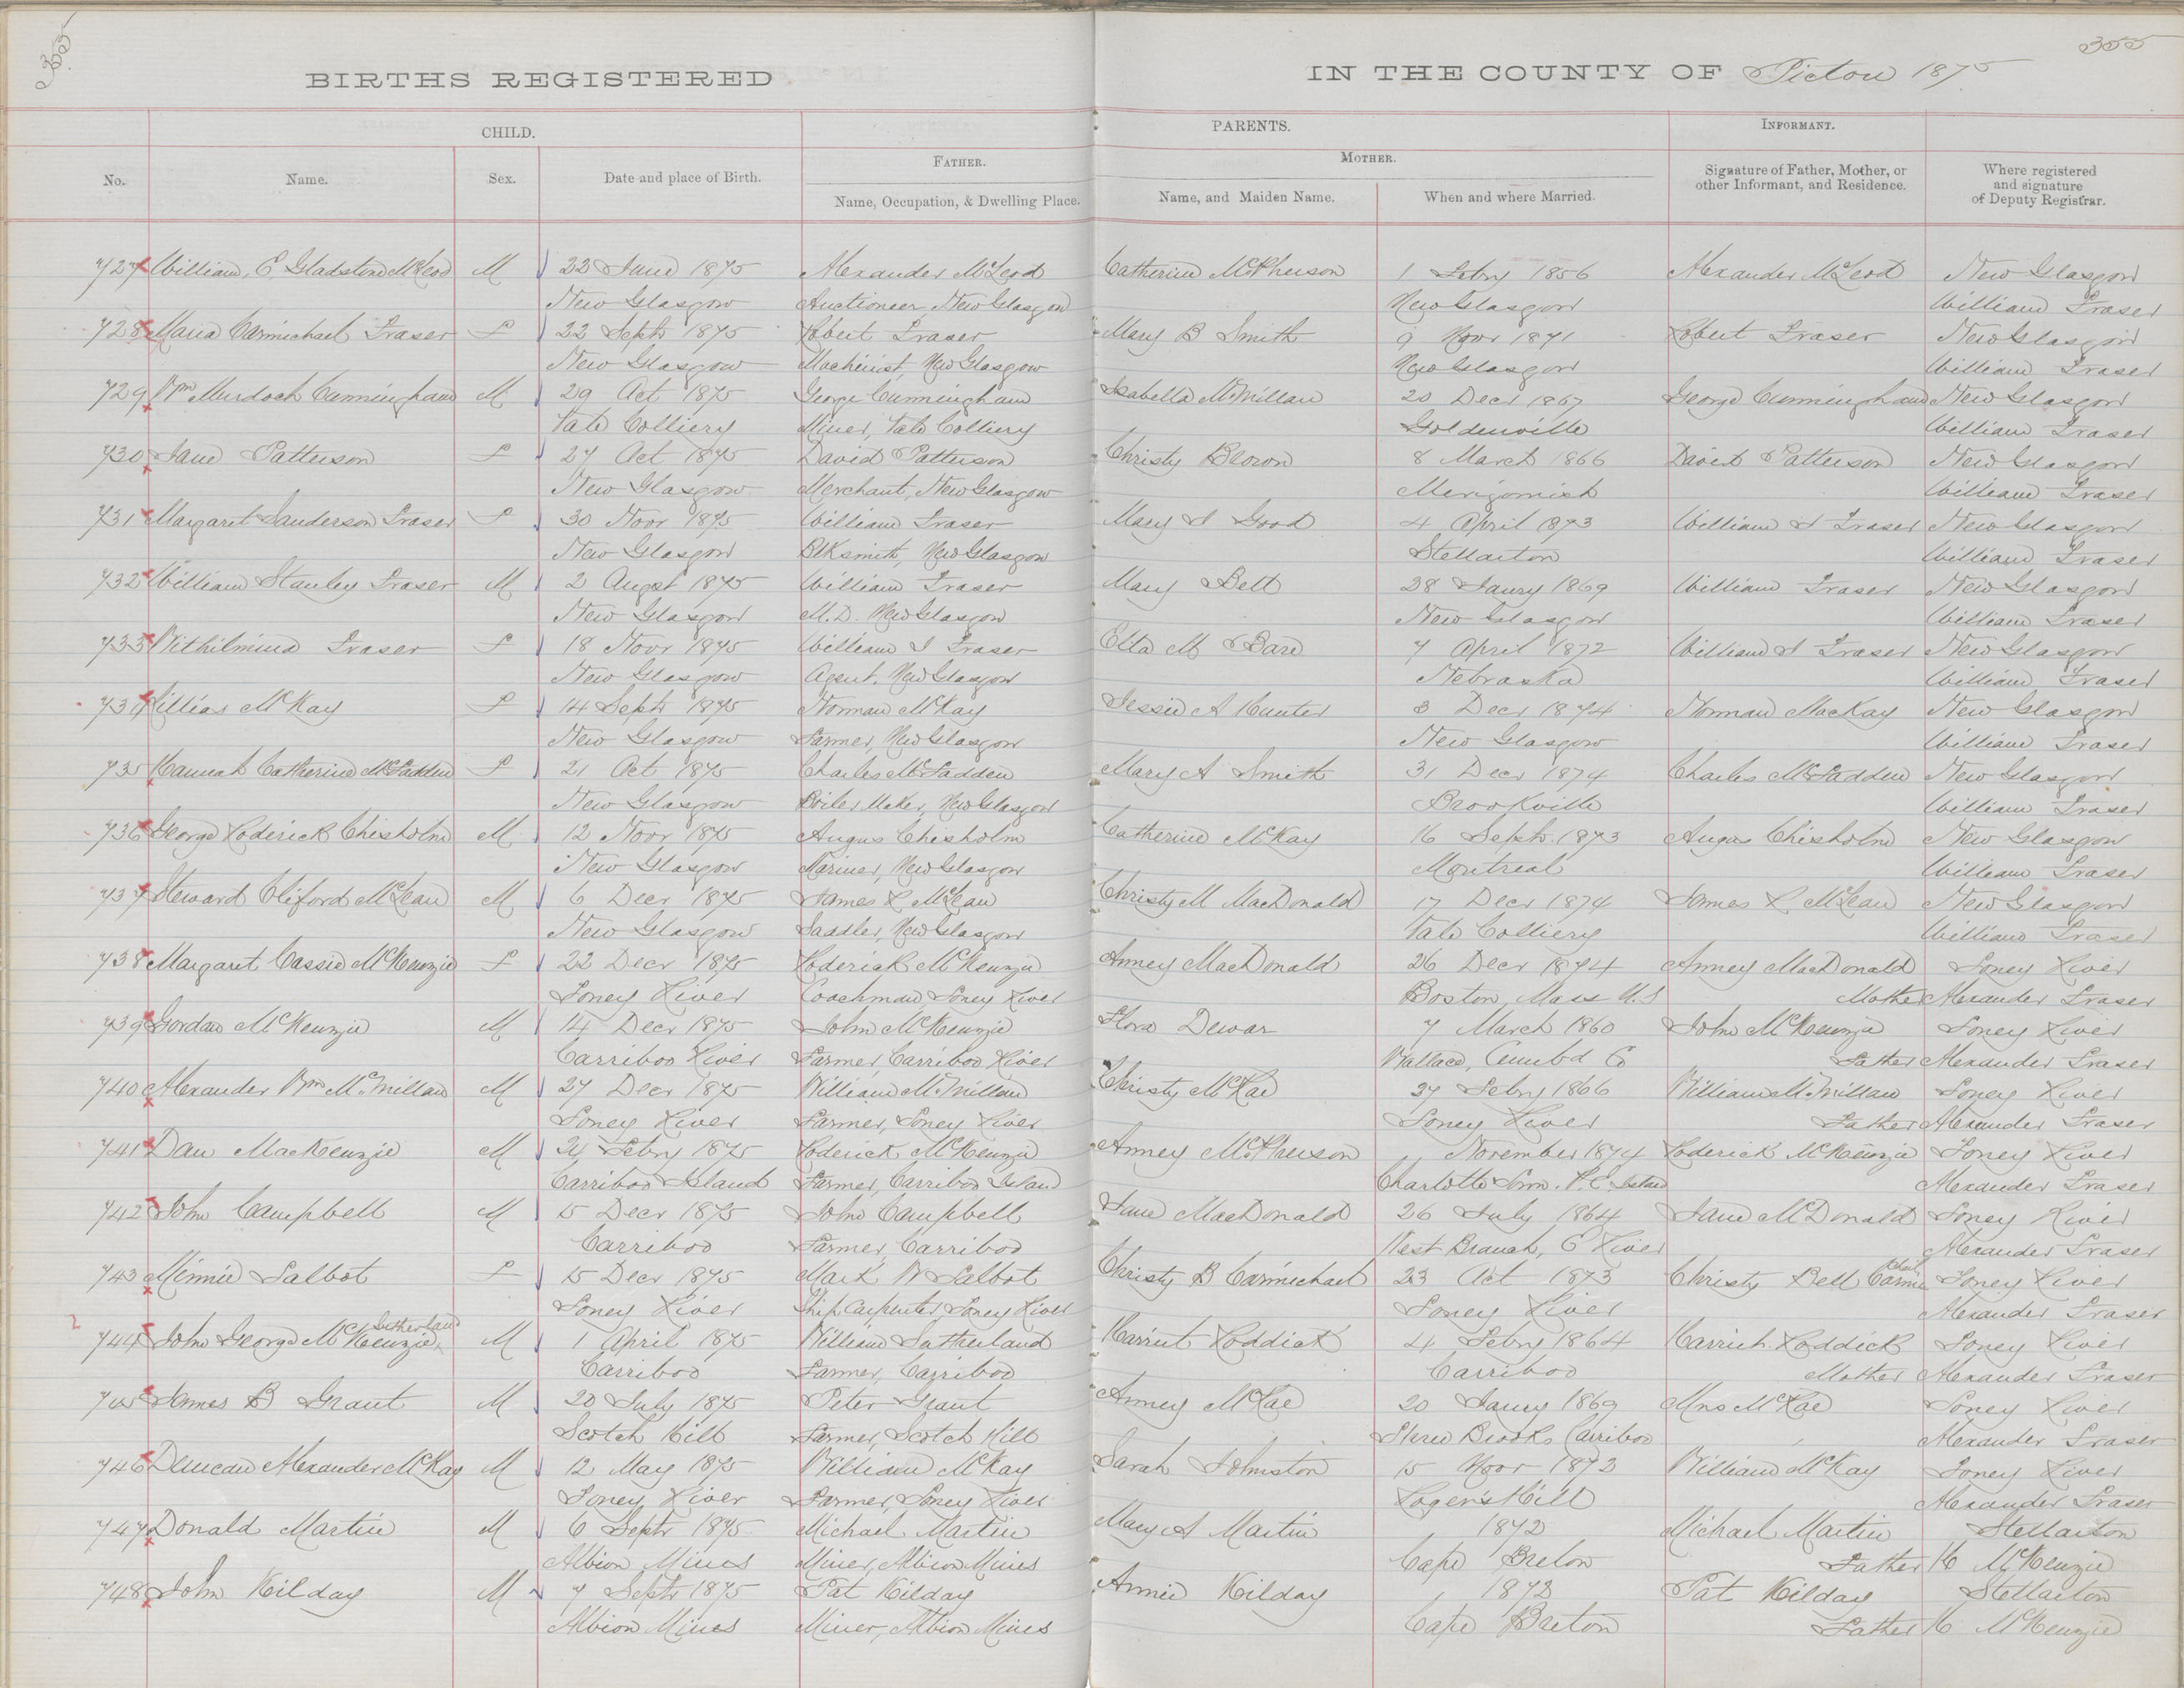 355
355
BIRTHS REGISTERED IN THE COUNTY OF Pictou 1875
CHILD. PARENTS. INFORMANT.
No. Name. Sex. Date and place of Birth. FATHER. Name, Occupation, & Dwelling Place. MOTHER. Name, and Maiden Name. When and where Married. Signature of Father, Mother, or other Informant, and Residence. Where registered and signature of Deputy Registrar.
727 William E Gladston McLeod M 22 June 1875 Alexander McLeod Catherine McPherson 1 Febry 1856 Alexander McLeod New Glasgow
New Glasgow Auctioneer, New Glasgow New Glasgow William Fraser
728 Maria Carmichael Fraser F 22 Septr 1875 Robert Fraser Mary B Smith 9 Novr 1871 Robert Fraser New Glasgow
New Glasgow Machinist, New Glasgow New Glasgow William Fraser
729 Wm Murdoch Cunningham M 29 Oct 1875 George Cunningham Isabella McMillan 20 Decr 1867 George Cunningham New Glasgow
Vale Colliery Miner, Vale Colliery Goldenville William Fraser
730 Jane Patterson F 27 Oct 1875 David Patterson Christy Brown 8 March 1866 David Patterson New Glasgow
New Glasgow Merchant, New Glasgow Merigomish William Fraser
731 Margaret Sanderson Fraser F 30 Novr 1875 William Fraser Mary J Good 4 April 1873 William J Fraser New Glasgow
New Glasgow Blksmith, New Glasgow Stellarton William Fraser
732 William Stanley Fraser M 2 Augst 1875 William Fraser Mary Bell 28 Janry 1869 William Fraser New Glasgow
New Glasgow M.D. New Glasgow New Glasgow William Fraser
733 Wilhilmina Fraser F 18 Novr 1875 William J Fraser Etta M 7 April 1872 William J Fraser New Glasgow
New Glasgow Agent, New Glasgow Nebraska William Fraser
734 Lillias McKay F 14 Septr 1875 Norman McKay Jessie A Hunter 3 Decr 1874 Norman MacKay New Glasgow
New Glasgow Farmer, New Glasgow New Glasgow William Fraser
735 Hannah Catherine McFadden F 21 Oct 1875 Charles McFadden Mary A Smith 31 Decr 1874 Charles McFadden New Glasgow
New Glasgow Boiler Maker, New Glasgow Brookville William Fraser
736 George Roderick Chisholm M 12 Novr 1875 Angus Chisholm Catherine McKay 16 Septr 1873 Angus Chisholm New Glasgow
New Glasgow Mariner, New Glasgow Montreal William Fraser
737 Steward Cliford McLean M 6 Decr 1875 James R McLean Christy M MacDonald 17 Decr 1874 James R McLean New Glasgow
New Glasgow Saddler, New Glasgow Vale Colliery William Fraser
738 Margaret Cassie McKenzie F 22 Decr 1875 Roderick McKenzie Anney MacDonald 26 Decr 1874 Anney MacDonald Toney River
Toney River Coachman, Toney River Boston, Mass U.S Mother Alexander Fraser
739 Gordan McKenzie M 14 Decr 1875 John McKenzie Flora Dewar 7 March 1860 John McKenzie Toney River
Carriboo River Farmer, Carriboo River Wallace, Cumbd Co Father Alexander Fraser
740 Alexander Wm McMillan M 27 Decr 1875 William McMillan Christy McRae 27 Febry 1866 William McMillan Toney River
Toney River Farmer, Toney River Toney River Father Alexander Fraser
741 Dan MacKenzie M 24 Febry 1875 Roderick McKenzie Anney McPherson November 1874 Roderick McKenzie Toney River
Carriboo Island Farmer, Carriboo Island Charlotte Town. P.E. Island Alexander Fraser
742 John Campbell M 15 Decr 1875 John Campbell Jane MacDonald 26 July 1864 Jane McDonald Toney River
Carriboo Farmer, Carriboo West Branch, E River Alexander Fraser
743 Minnie Talbot F 15 Decr 1875 Mark W Talbot Christy B Carmichael 23 Oct 1873 Christy Bell Carmichael Toney River
Toney River Ship Carpenter, Toney River Toney River Alexander Fraser
2 744 John George McKenzie Sutherland M 1 April 1875 William Sutherland Harriet Roddick 4 Febry 1864 Harriet Roddick Toney River
Carriboo Farmer, Carriboo Carriboo Mother Alexander Fraser
745 James B Grant M 20 July 1875 Peter Grant Anney McRae 20 Janry 1869 Mrs McRae Toney River
Scotch Hill Farmer, Scotch Hill Three Brooks Carriboo Alexander Fraser
746 Duncan Alexander McKay M 12 May 1875 William McKay Sarah Johnston 15 Novr 1872 William McKay Toney River
Toney River Farmer, Toney River Roger's Hill Alexander Fraser
747 Donald Martin M 6 Septr 1875 Michael Martin Mary A Martin 1872 Michael Martin Stellarton
Albion Mines Miner, Albion Mines Cape Breton Father H McKenzie
748 John Kilday M 7 Septr 1875 Pat Kilday Annie Kilday 1872 Pat Kilday Stellarton
Albion Mines Miner, Albion Mines Cape Breton Father H McKenzie